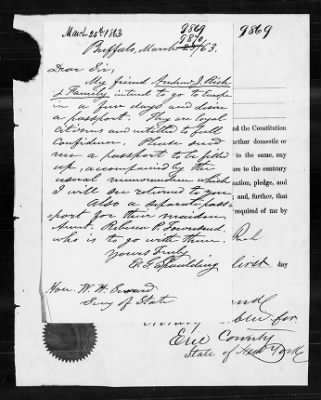 March 28th 1863
9869
9870
9869
Buffalo, March 25/63.
Dear Sir,
My friend Andrew J. Rich
& Family intend to go to Europe
in a few days and desire
a passport. They are loyal
citizens and entitled to full
confidence. Please send
me a passport to be filled
up, accompanied by the
usual memorandum which
I will see returned to you
Also a separate pass-
port for their maiden
Aunt. Rebecca P. Townsend
who is to go with them.
Yours Truly
E. G. Spaulding
Hon. W. H. Seward
Secy of State
nd the Constitution
ether domestic or
to the same, any
to the contrary
nation, pledge, and
; and, further, that
required of me by
Rich
first day
and
Public for
Erie County
State of New York